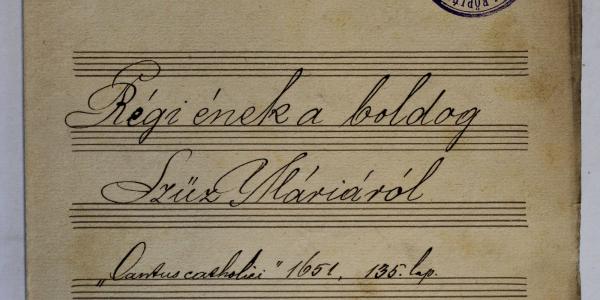 Régi ének a boldog
Szűz Máriáról
„Cantus catholici" 1651, 135. lap.